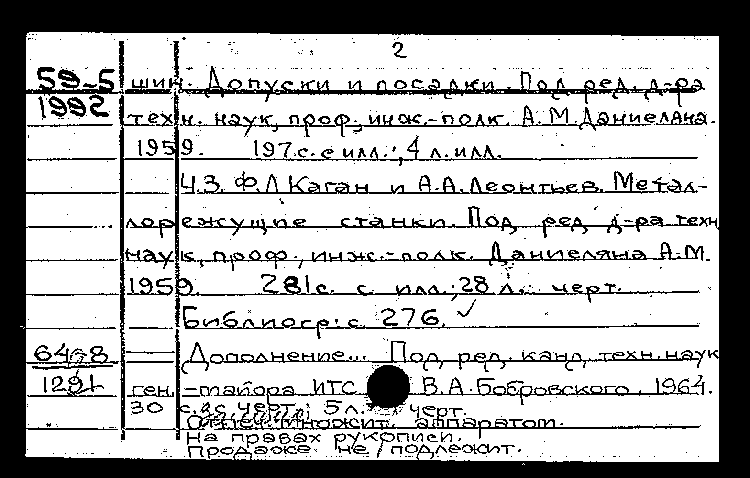 2
59-5 шин. Допуски и посадки. Под ред. д-ра
1992 техн. наук, проф., инж.-полк. А.М.Даниеляна.
1959. 197с. с илл.; 4 л. илл.
Ч.3. Ф.Л Каган и А.А.Леонтьев. Метал-
лорежущие станки. Под ред д-ра техн
наук, проф., инж.-полк. Даниеляна А.М.
1959. 281с. с илл.; 28 л. черт.
Библиогр: с 276.
Дополнение... Под ред. канд. техн. наук
1291 ген.-майора ИТС В.А.Бобровского. 1964.
30 с. черт; 5 л. черт.
множит. аппаратом.
На правах рукописи.
Продаже не подлежит.